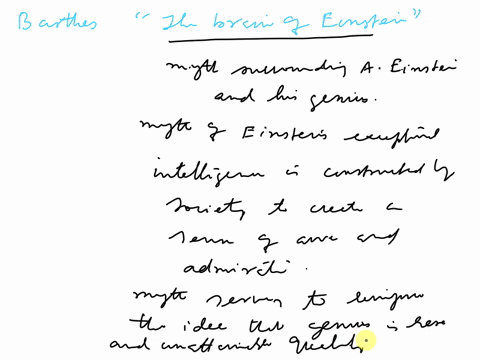 Barthes "The brain of Einstein"
myth surrounding A. Einstein
and his genius.
myth of Einstein's exceptional
intelligence is constructed by
society to create a
sense of awe and
admiration.
myth serves to
the idea that genius is rare
and unattainable quality.